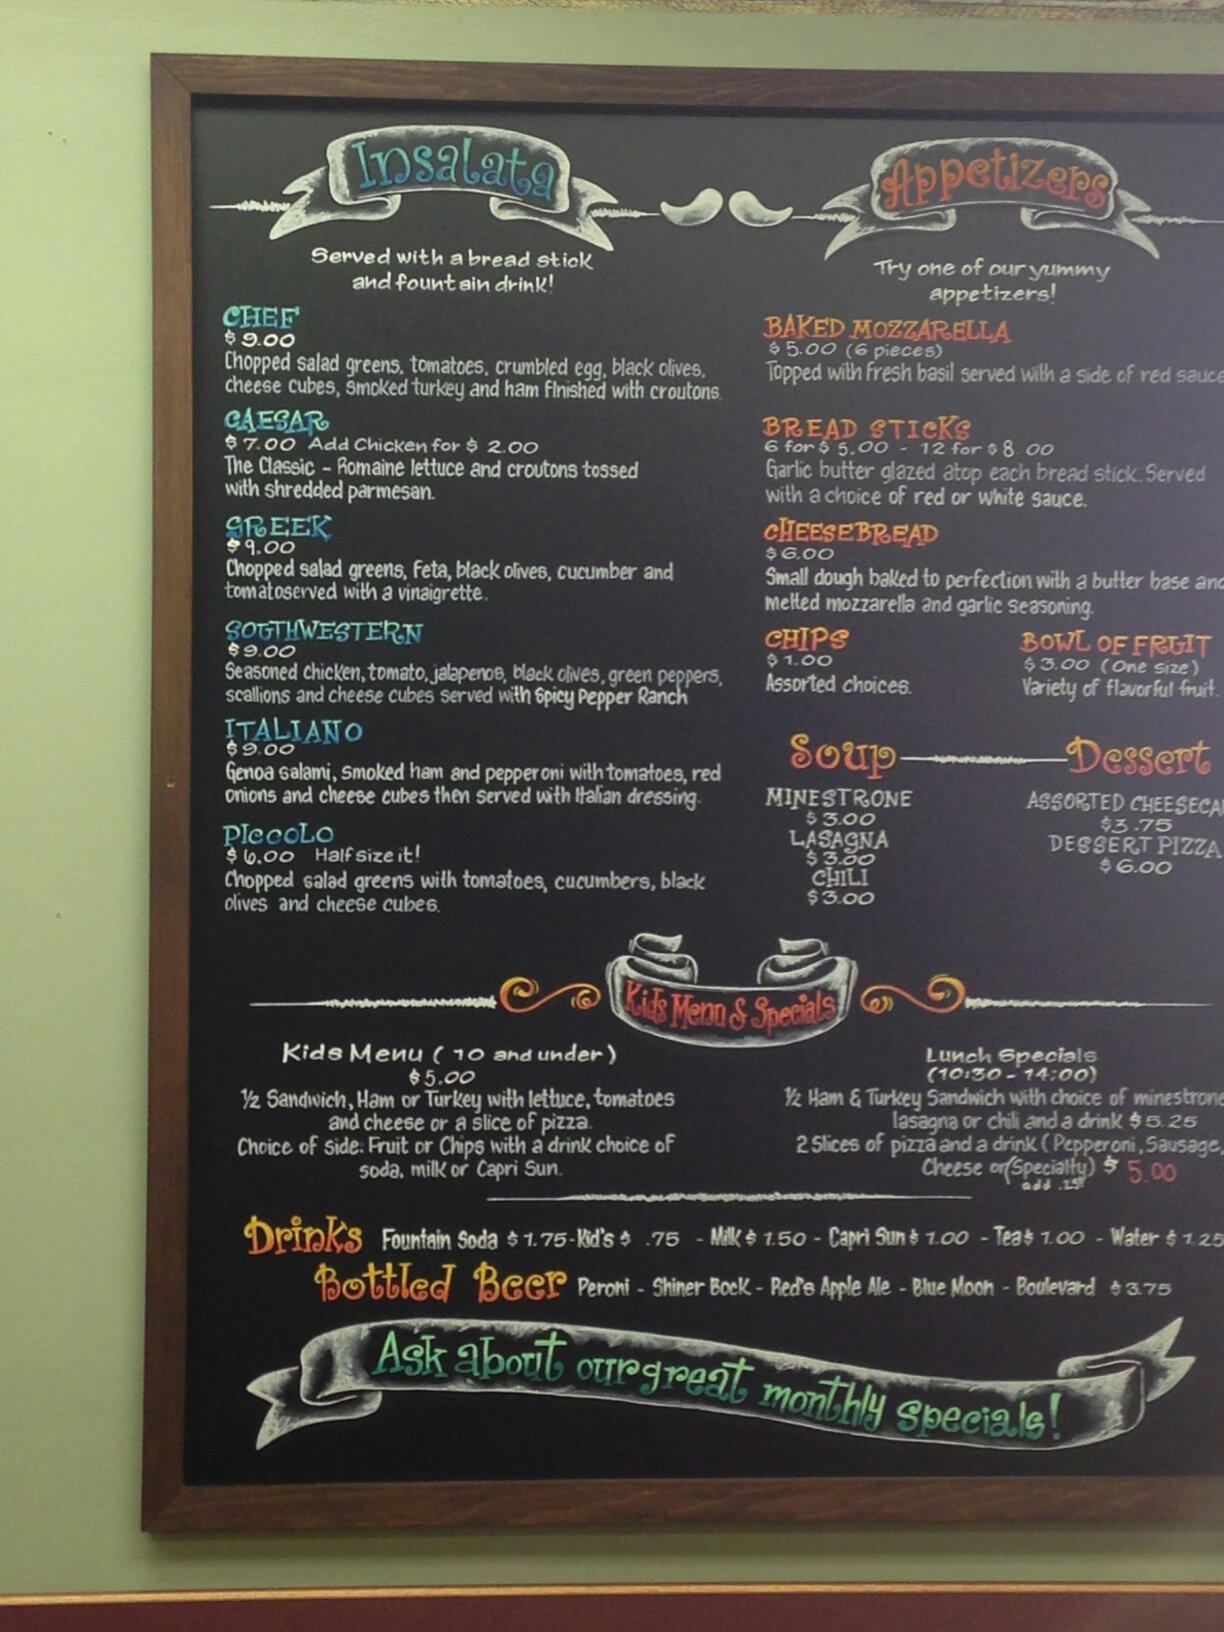 Insalata
Served with a bread stick
and fountain drink!
CHEF
$9.00
Chopped salad greens, tomatoes, crumbled egg, black olives,
cheese cubes, smoked turkey and ham finished with croutons.
CAESAR
$7.00 Add Chicken for $2.00
The Classic - Romaine lettuce and croutons tossed
with shredded parmesan.
GREEK
$9.00
Chopped salad greens, feta, black olives, cucumber and
tomatoserved with a vinaigrette.
SOUTHWESTERN
$9.00
Seasoned chicken, tomato, jalapenos, black olives, green peppers,
scallions and cheese cubes served with Spicy Pepper Ranch
ITALIANO
$9.00
Genoa salami, smoked ham and pepperoni with tomatoes, red
onions and cheese cubes then served with Italian dressing.
PICCOLO
$6.00 Half size it!
Chopped salad greens with tomatoes, cucumbers, black
olives and cheese cubes.
Appetizers
Try one of our yummy
appetizers!
BAKED MOZZARELLA
$5.00 (6 pieces)
Topped with fresh basil served with a side of red sauce
BREAD STICKS
6 for $5.00 - 12 for $8.00
Garlic butter glazed atop each bread stick. Served
with a choice of red or white sauce.
CHEESEBREAD
$6.00
Small dough baked to perfection with a butter base and
melted mozzarella and garlic seasoning.
CHIPS
$1.00
Assorted choices.
BOWL OF FRUIT
$3.00 (One size)
Variety of flavorful fruit.
Soup
MINESTRONE
$3.00
LASAGNA
$3.00
CHILI
$3.00
Dessert
ASSORTED CHEESECA
$3.75
DESSERT PIZZA
$6.00
Kids Menu & Specials
Kids Menu (10 and under)
$5.00
½ Sandwich, Ham or Turkey with lettuce, tomatoes
and cheese or a slice of pizza.
Choice of side: Fruit or Chips with a drink choice of
soda, milk or Capri Sun.
Lunch Specials
(10:30 - 14:00)
½ Ham & Turkey Sandwich with choice of minestrone
lasagna or chili and a drink $5.25
2 Slices of pizza and a drink (Pepperoni, Sausage,
Cheese or (Specialty) $5.00
add .25¢
Drinks Fountain Soda $1.75-Kid's $ .75 - Milk $1.50 - Capri Sun $1.00 - Tea $1.00 - Water $1.25
Bottled Beer Peroni - Shiner Bock - Red's Apple Ale - Blue Moon - Boulevard $3.75
Ask about our great monthly specials!